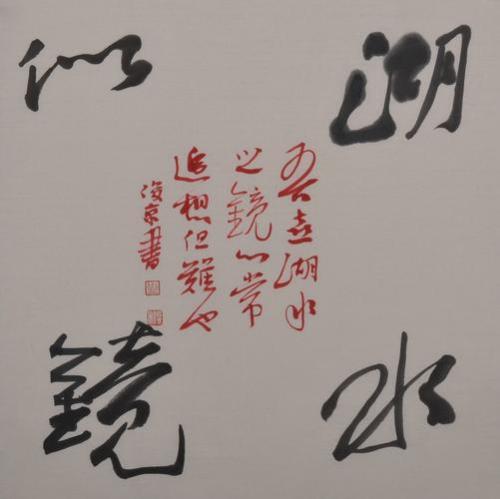 湖水
似鏡
吾喜湖水
之鏡心常
追想但難也
俊京書